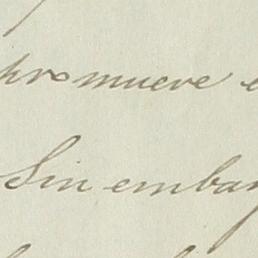 promueve
Sin embar